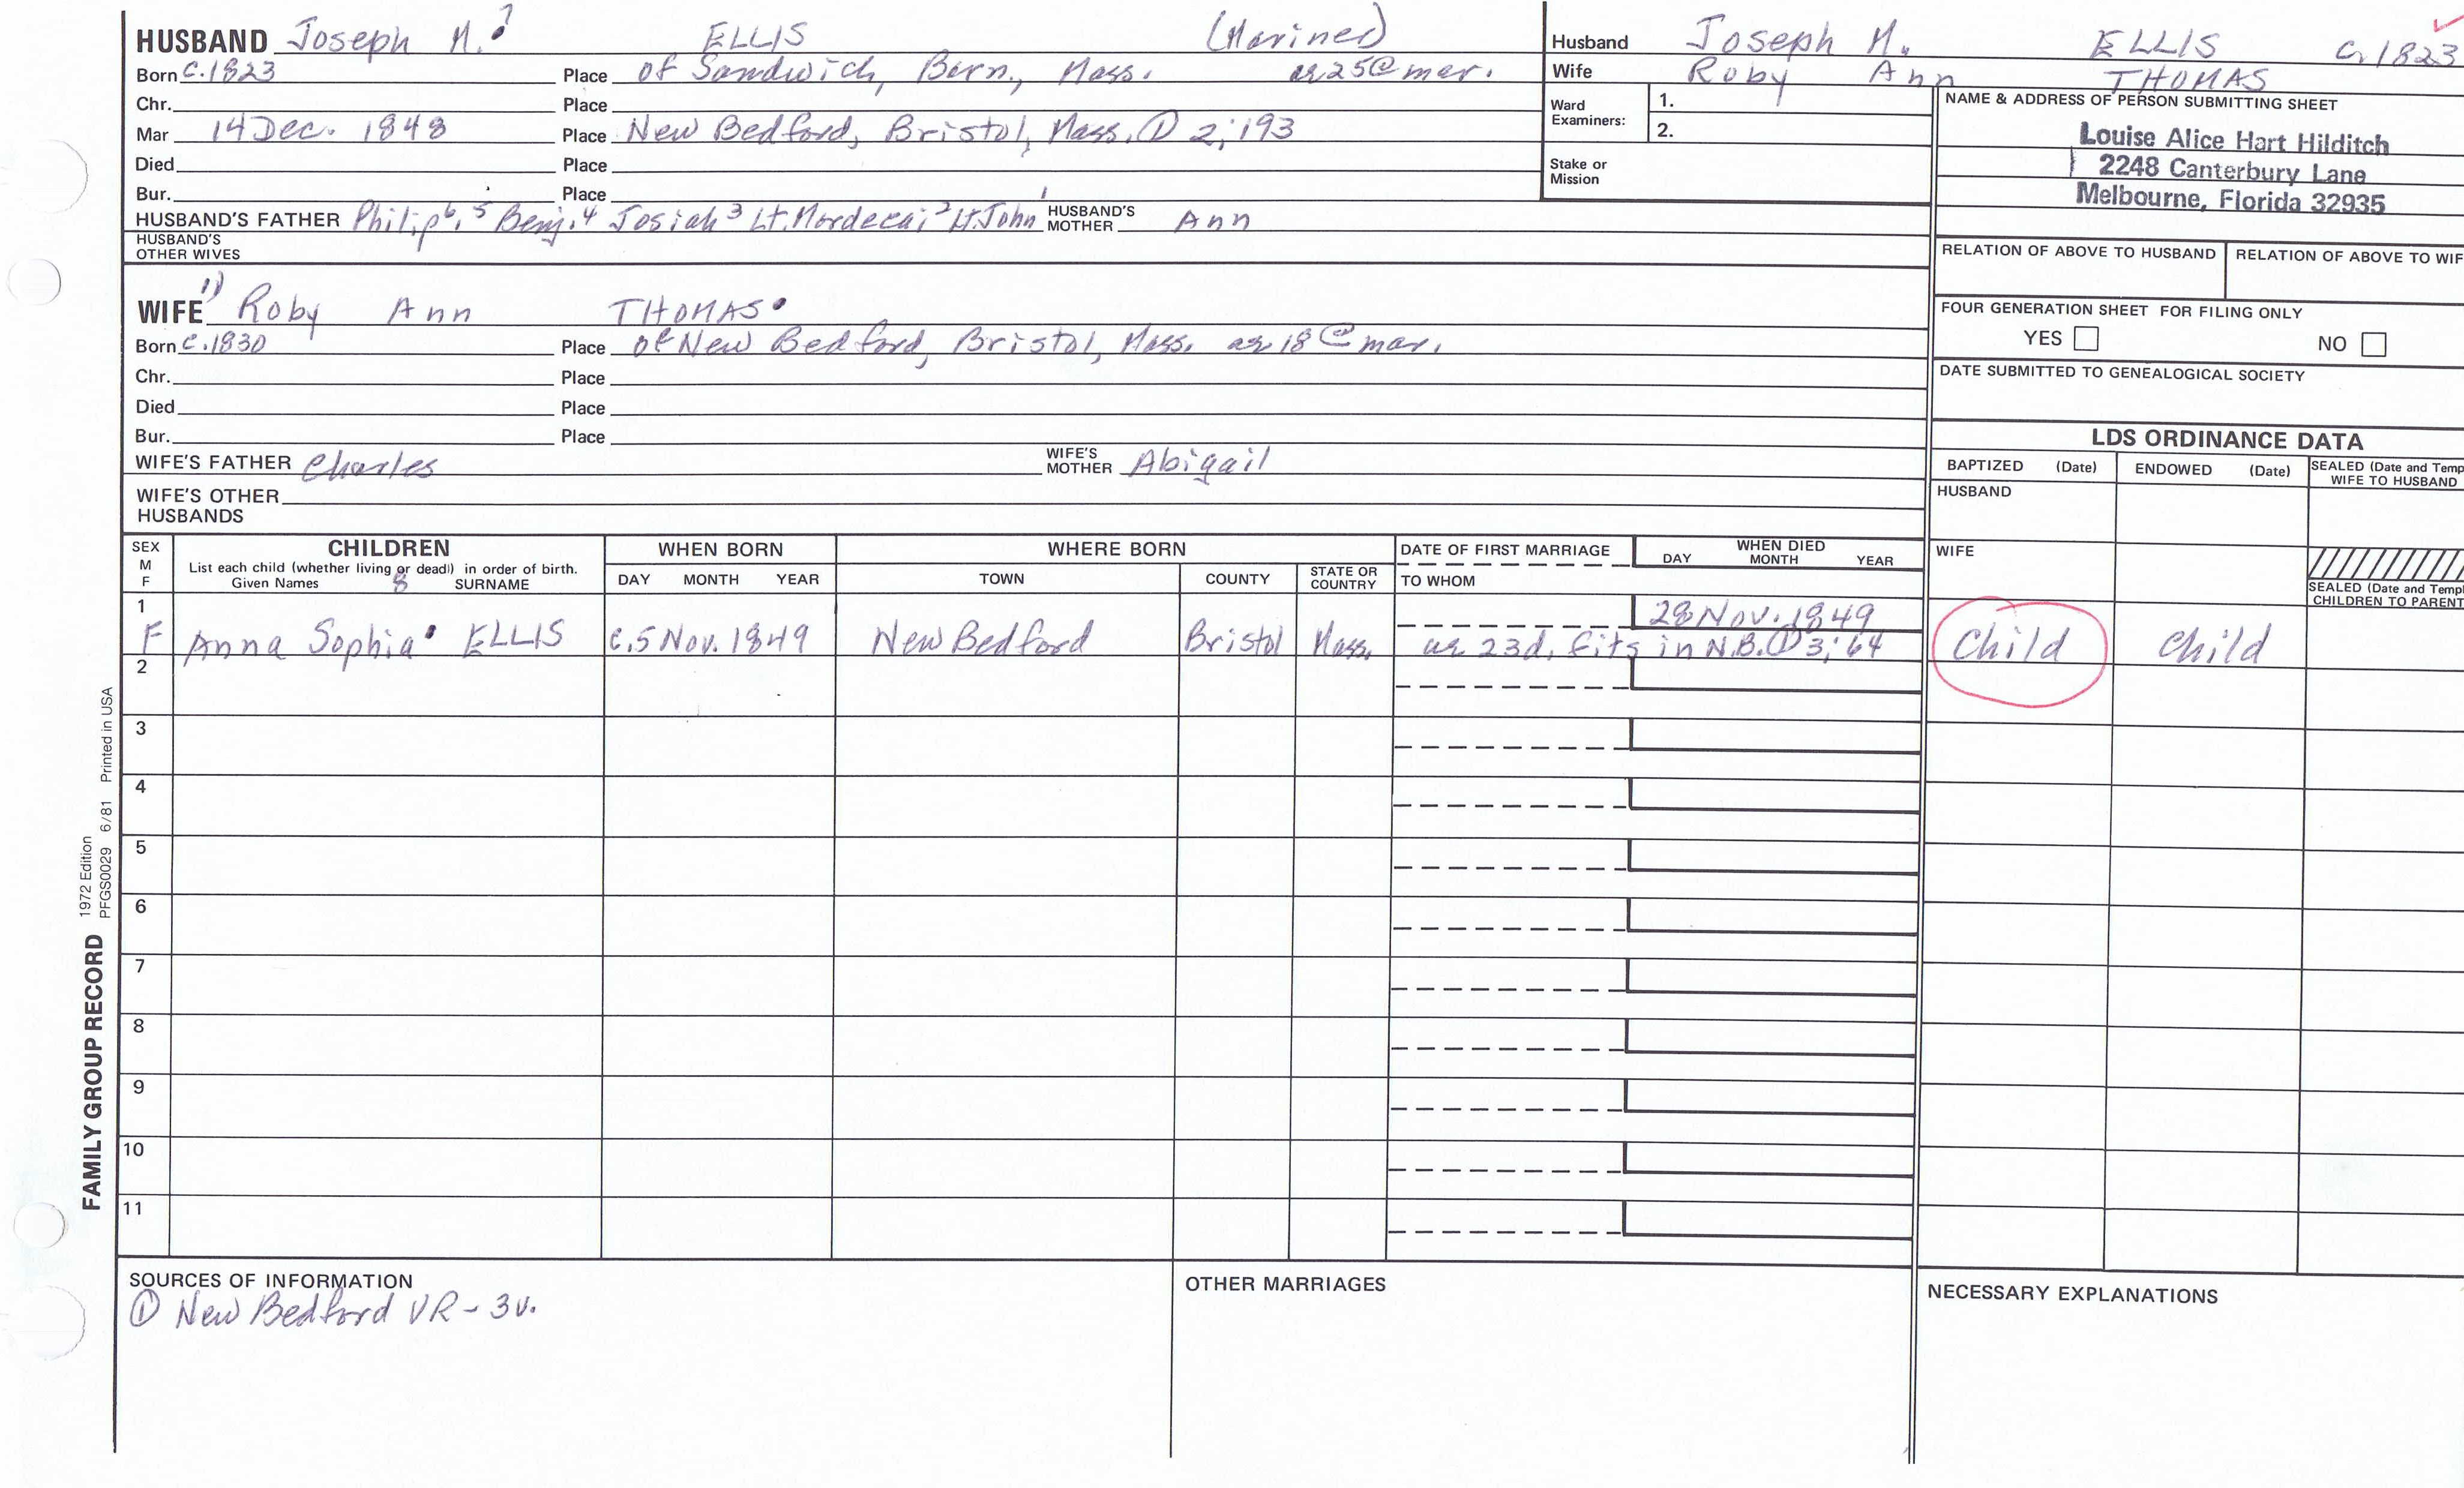 HUSBAND Joseph M. 7 ELLIS (Mariner)
Born c.1823 Place of Sandwich, Barn., Mass. ae 25@mar.
Chr. Place
Mar 14 Dec. 1848 Place New Bedford, Bristol, Mass. ① 2;193
Died Place
Bur. Place
HUSBAND'S FATHER Philip 6, 5 Benj. 4 Josiah 3 Lt. Mordecai, 2 Lt. John 1 HUSBAND'S MOTHER Ann
HUSBAND'S OTHER WIVES
WIFE 1) Roby Ann THOMAS
Born c.1830 Place of New Bedford, Bristol, Mass. ae 18@mar.
Chr. Place
Died Place
Bur. Place
WIFE'S FATHER Charles WIFE'S MOTHER Abigail
WIFE'S OTHER HUSBANDS
Husband Joseph M. ELLIS c.1823
Wife Roby Ann THOMAS
Ward Examiners: 1.
2.
Stake or Mission
NAME & ADDRESS OF PERSON SUBMITTING SHEET
Louise Alice Hart Hilditch
2248 Canterbury Lane
Melbourne, Florida 32935
RELATION OF ABOVE TO HUSBAND RELATION OF ABOVE TO WIF
FOUR GENERATION SHEET FOR FILING ONLY
YES NO
DATE SUBMITTED TO GENEALOGICAL SOCIETY
LDS ORDINANCE DATA
BAPTIZED (Date) ENDOWED (Date) SEALED (Date and Temp
WIFE TO HUSBAND
HUSBAND
WIFE
SEALED (Date and Templ
CHILDREN TO PARENT
SEX M F
CHILDREN
List each child (whether living or dead) in order of birth.
Given Names 8 SURNAME
WHEN BORN
DAY MONTH YEAR
WHERE BORN
TOWN COUNTY STATE OR COUNTRY
DATE OF FIRST MARRIAGE
TO WHOM
WHEN DIED
DAY MONTH YEAR
1 28 Nov. 1849
F Anna Sophia ELLIS c.5 Nov. 1849 New Bedford Bristol Mass. ae 23d, fits in N.B. ① 3;64 Child Child
2
3
4
5
6
7
8
9
10
11
SOURCES OF INFORMATION
① New Bedford VR - 3v.
OTHER MARRIAGES
NECESSARY EXPLANATIONS
FAMILY GROUP RECORD
1972 Edition
PFGS0029 6/81 Printed in USA